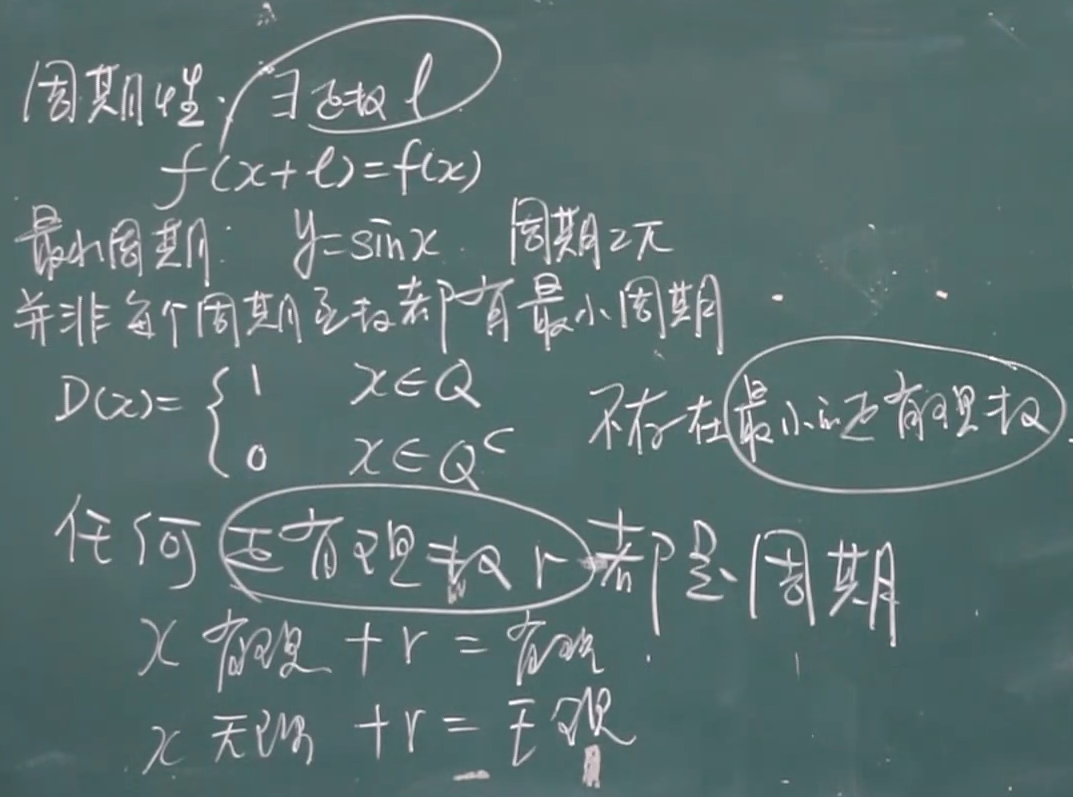 周期性. ∃正数 l
f(x+l)=f(x)
最小周期: y=sinx 周期2π
并非每个周期函数都有最小周期
D(x)= { 1 x∈Q
0 x∈Qᶜ 不存在最小正有理数.
任何正有理数 r 都是周期
x 有理 + r = 有理.
x 无理 + r = 无理